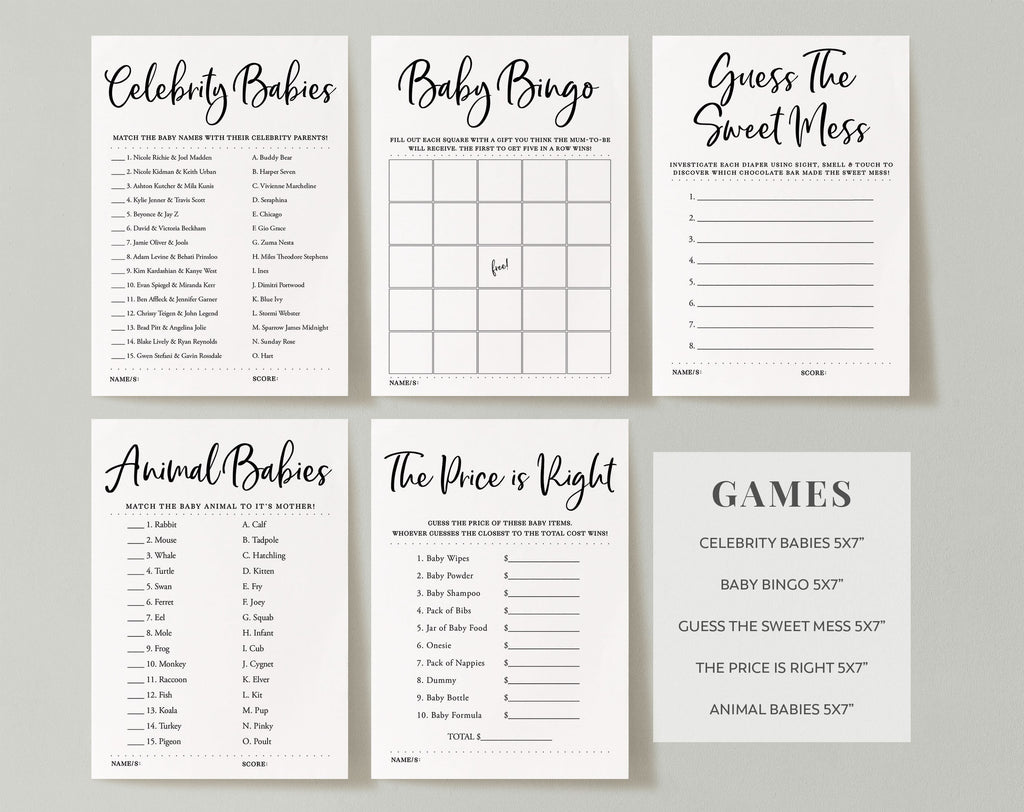 Celebrity Babies
MATCH THE BABY NAMES WITH THEIR CELEBRITY PARENTS!
____ 1. Nicole Richie & Joel Madden
____ 2. Nicole Kidman & Keith Urban
____ 3. Ashton Kutcher & Mila Kunis
____ 4. Kylie Jenner & Travis Scott
____ 5. Beyonce & Jay Z
____ 6. David & Victoria Beckham
____ 7. Jamie Oliver & Jools
____ 8. Adam Levine & Behati Prinsloo
____ 9. Kim Kardashian & Kanye West
____ 10. Evan Spiegel & Miranda Kerr
____ 11. Ben Affleck & Jennifer Garner
____ 12. Chrissy Teigen & John Legend
____ 13. Brad Pitt & Angelina Jolie
____ 14. Blake Lively & Ryan Reynolds
____ 15. Gwen Stefani & Gavin Rossdale
A. Buddy Bear
B. Harper Seven
C. Vivienne Marcheline
D. Seraphina
E. Chicago
F. Gio Grace
G. Zuma Nesta
H. Miles Theodore Stephens
I. Ines
J. Dimitri Portwood
K. Blue Ivy
L. Stormi Webster
M. Sparrow James Midnight
N. Sunday Rose
O. Hart
NAME/S:
SCORE:
Baby Bingo
FILL OUT EACH SQUARE WITH A GIFT YOU THINK THE MUM-TO-BE
WILL RECEIVE. THE FIRST TO GET FIVE IN A ROW WINS!
free!
NAME/S:
Guess The
Sweet Mess
INVESTIGATE EACH DIAPER USING SIGHT, SMELL & TOUCH TO
DISCOVER WHICH CHOCOLATE BAR MADE THE SWEET MESS!
1.
2.
3.
4.
5.
6.
7.
8.
NAME/S:
SCORE:
Animal Babies
MATCH THE BABY ANIMAL TO IT'S MOTHER!
____ 1. Rabbit
____ 2. Mouse
____ 3. Whale
____ 4. Turtle
____ 5. Swan
____ 6. Ferret
____ 7. Eel
____ 8. Mole
____ 9. Frog
____ 10. Monkey
____ 11. Raccoon
____ 12. Fish
____ 13. Koala
____ 14. Turkey
____ 15. Pigeon
A. Calf
B. Tadpole
C. Hatchling
D. Kitten
E. Fry
F. Joey
G. Squab
H. Infant
I. Cub
J. Cygnet
K. Elver
L. Kit
M. Pup
N. Pinky
O. Poult
NAME/S:
SCORE:
The Price is Right
GUESS THE PRICE OF THESE BABY ITEMS.
WHOEVER GUESSES THE CLOSEST TO THE TOTAL COST WINS!
1. Baby Wipes $
2. Baby Powder $
3. Baby Shampoo $
4. Pack of Bibs $
5. Jar of Baby Food $
6. Onesie $
7. Pack of Nappies $
8. Dummy $
9. Baby Bottle $
10. Baby Formula $
TOTAL $
NAME/S:
GAMES
CELEBRITY BABIES 5X7"
BABY BINGO 5X7"
GUESS THE SWEET MESS 5X7"
THE PRICE IS RIGHT 5X7"
ANIMAL BABIES 5X7"